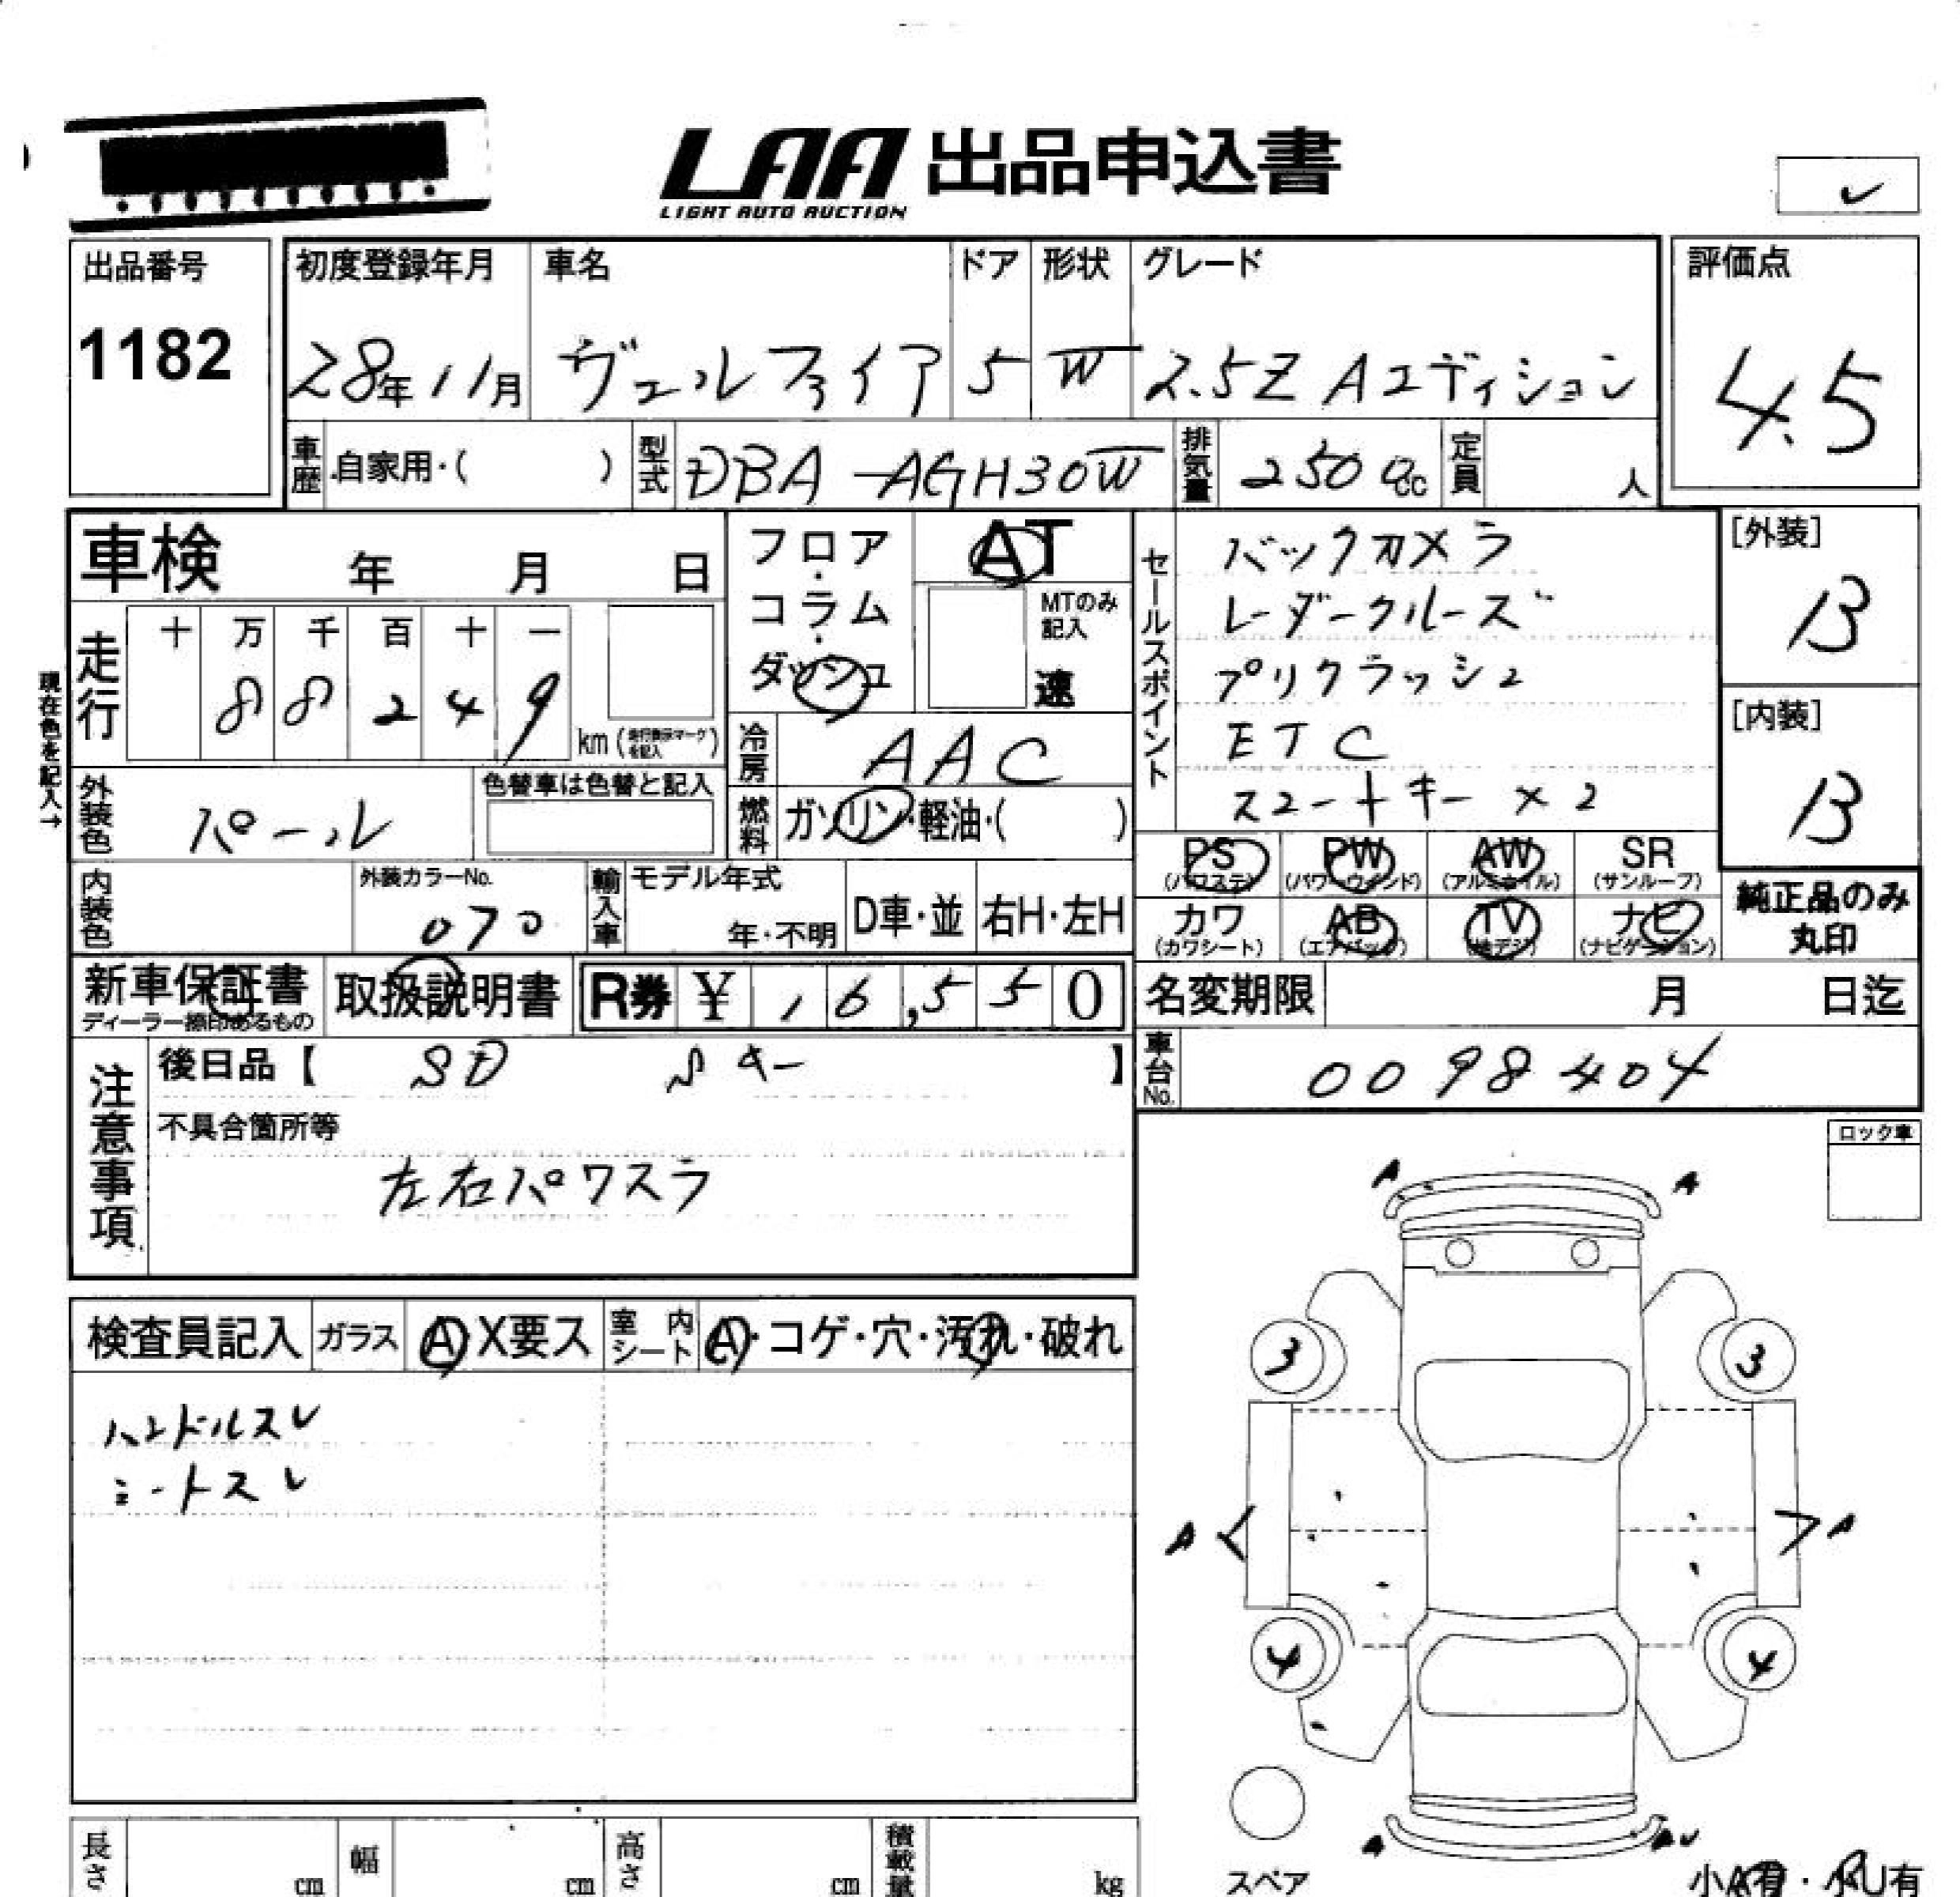 LAA 出品申込書
LIGHT AUTO AUCTION
出品番号
1182
初度登録年月
28年11月
車名
ヴェルファイア
ドア
5
形状
W
グレード
2.5Z Aエディション
評価点
4.5
車歴 自家用・( )
型式 DBA-AGH30W
排気量 2500cc
定員 人
車検 年 月 日
フロア・コラム・ダッシュ
AT
MTのみ記入
速
セールスポイント
バックカメラ
レーダークルーズ
プリクラッシュ
ETC
スマートキー×2
[外装]
B
[内装]
B
現在色を記入→
走行
十 万 千 百 十 一
8 8 2 4 9
km (走行表示マークを記入)
冷房 AAC
外装色 パール
色替車は色替と記入
燃料 ガソリン・軽油・( )
内装色
外装カラーNo.
070
輸入車
モデル年式
年・不明
D車・並
右H・左H
PS (パワステ)
PW (パワーウインド)
AW (アルミホイル)
SR (サンルーフ)
カワ (カワシート)
AB (エアバック)
TV (地デジ)
ナビ (ナビゲーション)
純正品のみ丸印
新車保証書
ディーラー捺印あるもの
取扱説明書
R券 ¥ 16,550
名変期限 月 日迄
車台No. 0098404
注意事項
後日品【 SD Sキー 】
不具合箇所等
左右パワスラ
ロック車
検査員記入
ガラス A X要ス
室内シート A・コゲ・穴・汚れ・破れ
ハンドルスレ
シートスレ
A A
3 3
A A
4 4
A AU
スペア
小A有・小U有
長さ cm
幅 cm
高さ cm
積載量 kg